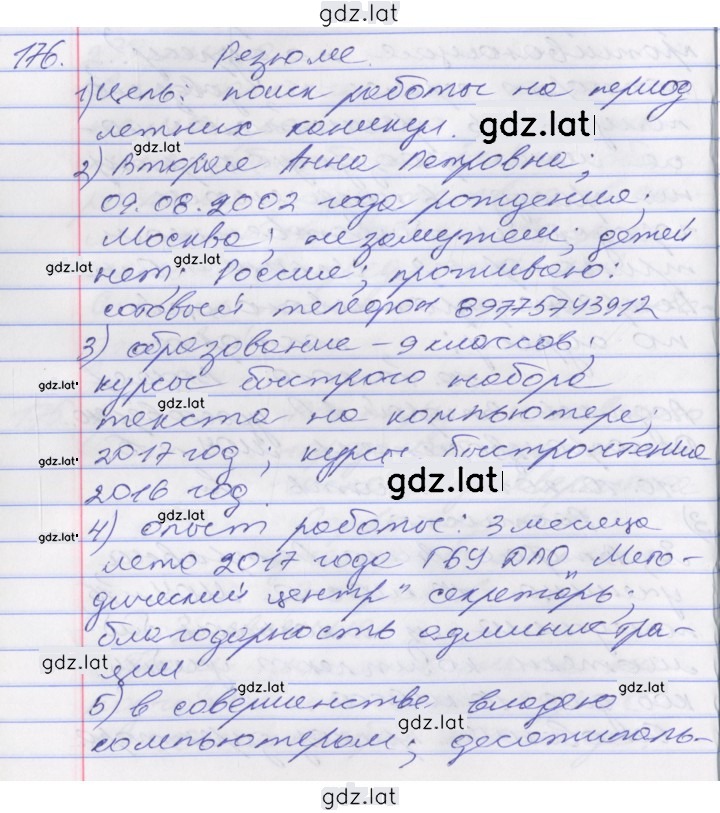 gdz.lat
176. Резюме.
1) Цель: поиск работы на период
летних каникул. gdz.lat
2) Вторая Анна Петровна;
09.08.2002 года рождения;
Москва; не замужем; детей
gdz.lat нет; gdz.lat Россия; проживаю:
сотовый телефон 89775743912
3) образование - 9 классов;
gdz.lat курсы быстрого набора
gdz.lat
текста на компьютере;
gdz.lat 2017 год; курсы быстрочтения
2016 год. gdz.lat
gdz.lat
gdz.lat 4) опыт работы: 3 месяца
лето 2017 года ГБУ ДПО „Мето-
дический центр" секретарь;
благодарность администра-
gdz.lat ции
gdz.lat gdz.lat
5) в совершенстве владею
gdz.lat
компьютером; десятипаль-
gdz.lat